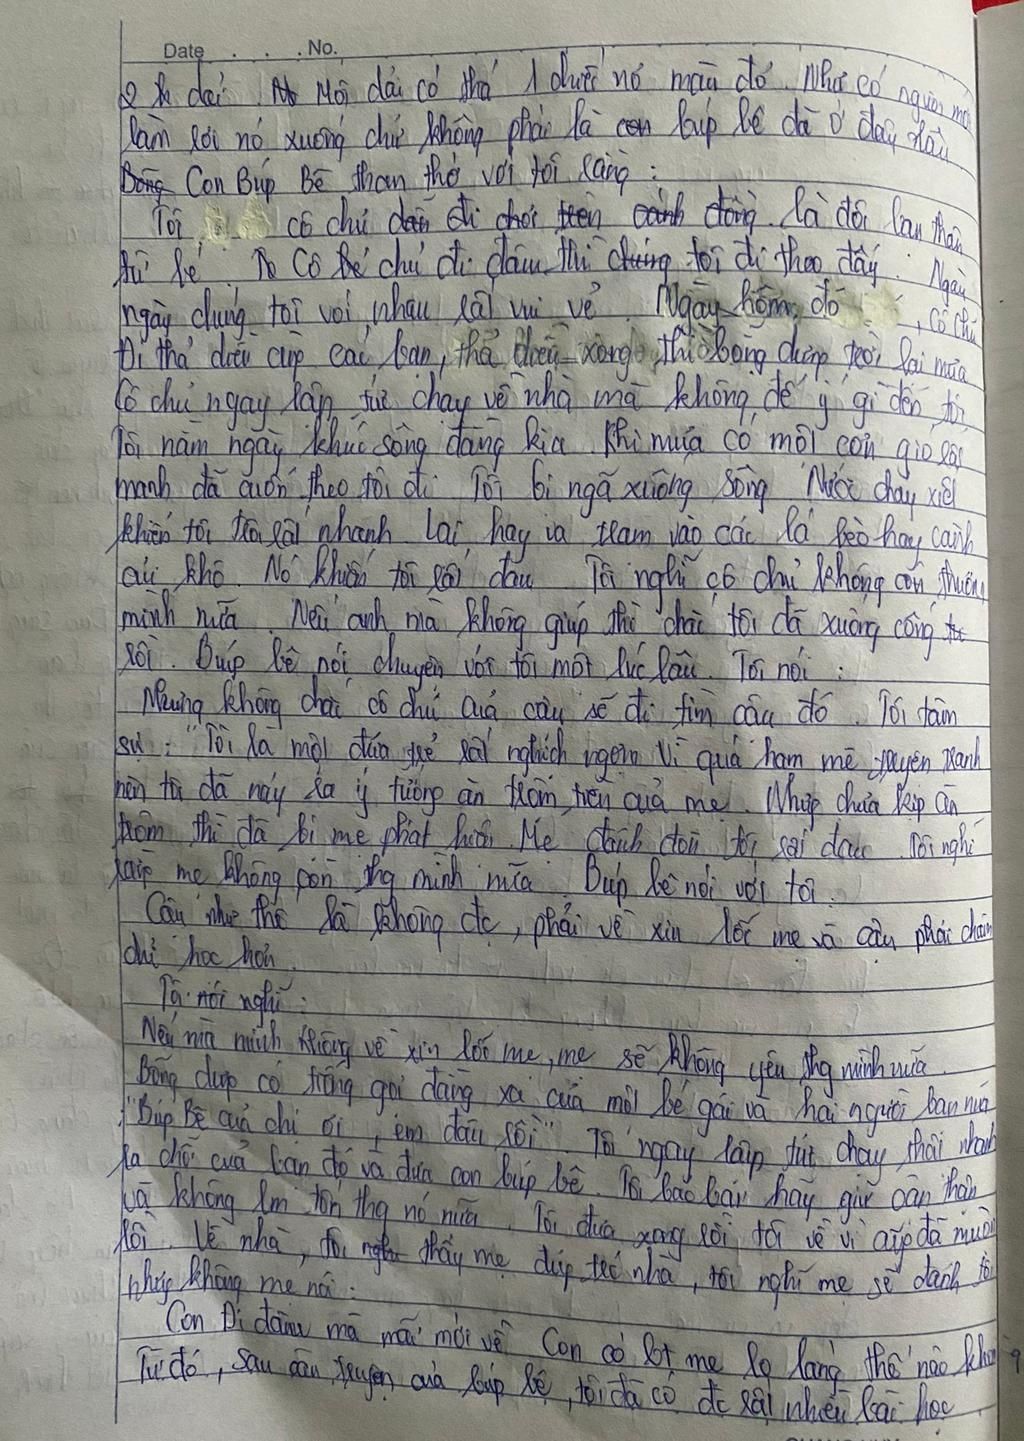 Date . . . No.
dài Mỗi dải có thả 1 chiếc nó màu đỏ. Như có người mới
làm rơi nó xuống chứ không phải là con búp bê đã ở đây lâu
Bỗng Con Búp Bê than thở với tôi rằng:
Tôi, cô chủ đến đi chơi trên cánh đồng. là đôi bạn thân
từ bé Cô bé chủ đi đâu thì chúng tôi đi theo đấy. Ngày
ngày chúng tôi với nhau rất vui vẻ. Ngày hôm đó, cô chủ
Đi thả diều cùng các bạn, thả diều xong, thì bỗng dưng trời lại mưa
Cô chủ ngay lập tức chạy về nhà mà không để ý gì đến tôi
Tôi nằm ngay khúc sông đằng kia. Khi mưa có một cơn gió rất
mạnh đã cuốn theo tôi đi Tôi bị ngã xuống sông Nước chảy xiết
khiến tôi trôi rất nhanh. Lại hay va trạm vào các lá bèo hay cành
củi khô. Nó khiến tôi rất đau Tôi nghĩ cô chủ không còn thương
mình nữa. Nếu anh mà không giúp thì chắc tôi đã xuống cống
rồi. Búp bê nói chuyện với tôi một lúc lâu. Tôi nói:
Nhưng không chắc cô chủ của cậu sẽ đi tìm cậu đó. Tôi tâm
sự: "Tôi là một đứa trẻ rất nghịch ngợm Vì quá ham mê truyện tranh
nên tôi đã nảy ra ý tưởng ăn trộm tiền của mẹ. Nhưg chưa kịp ăn
trộm thì đã bị mẹ phát hiện. Mẹ đánh đòn tôi rất đau. Tôi nghĩ
rằng mẹ không còn thg mình nữa. Búp bê nói với tôi:
Cậu như thế là không đc, phải về xin lỗi mẹ và cần phải chăm
chỉ học hơn.
Tôi nói nghĩ:
Nếu mà mình không về xin lỗi mẹ, mẹ sẽ không yêu thg mình nữa.
Bỗng dưg có tiếng gọi đằng xa của một bé gái và hai người bạn nữa
"Búp Bê của chị ơi, em đâu rồi" Tôi ngay lập tức chạy thật nhanh
ra chỗ của bạn đó và đưa con búp bê. Tôi bảo bạn hãy giữ cẩn thận
và không lm tổn thg nó nữa. Tôi đưa xong rồi tôi về vì cũg đã muộn
rồi. Về nhà, tôi thấy mẹ đứng trc nhà, tôi nghĩ mẹ sẽ đánh tôi
nhưg không mẹ nói:
Con Đi đâu mà mãi mới về Con có bt mẹ lo lắng thế nào khôg
Từ đó, sau câu truyện của búp bê, tôi đã có đc rất nhiều bài học